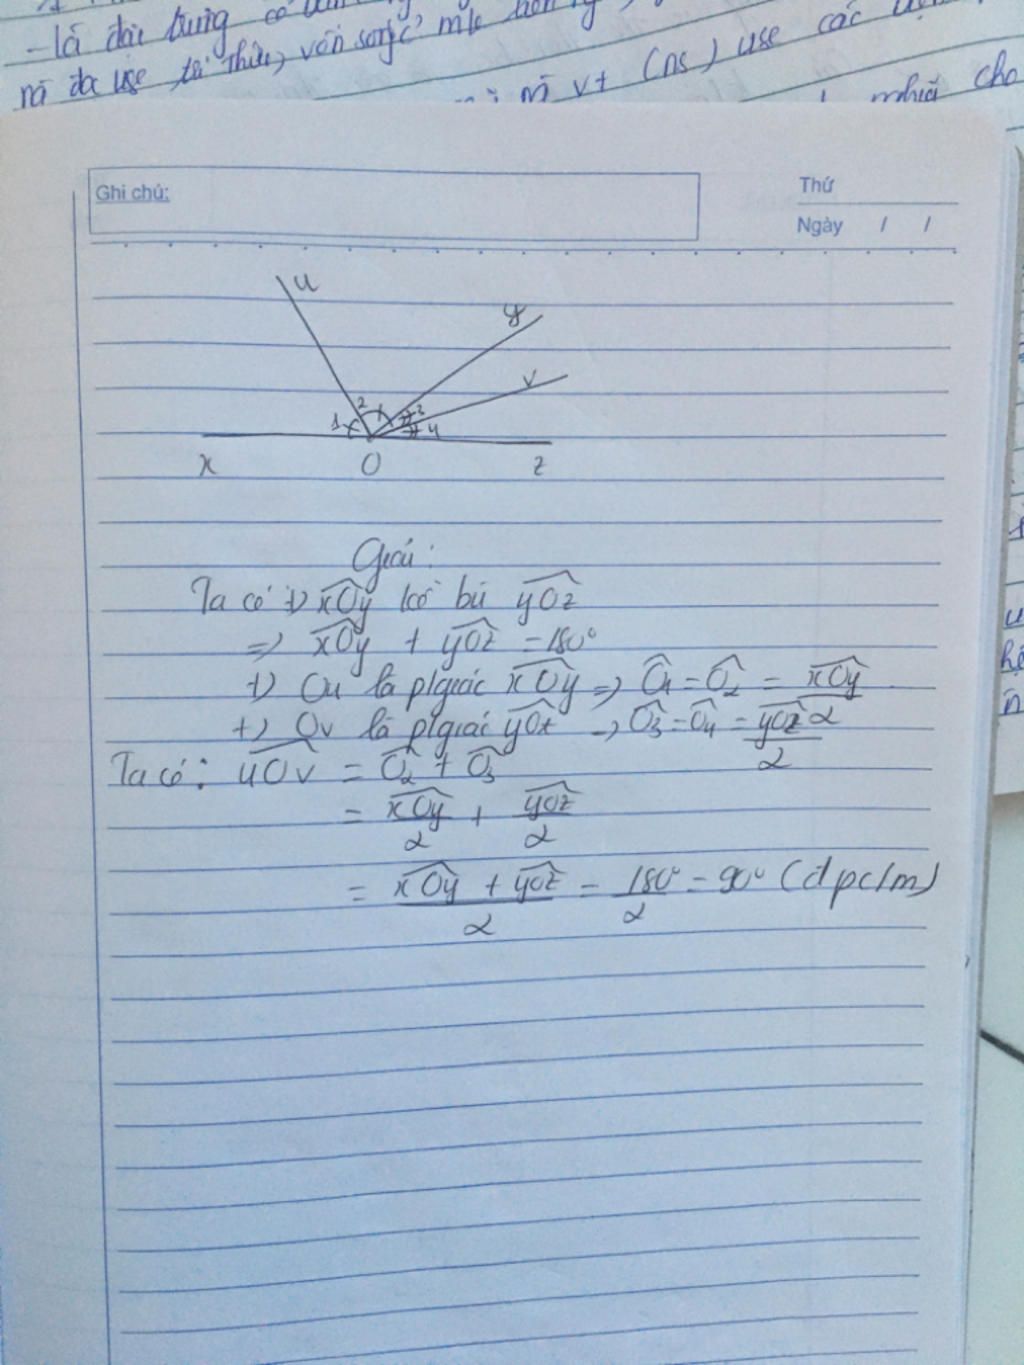 - là đại trưng có
nó đc use tri thức, vốn sống
vt (ns) use các
nghĩa cho
Ghi chú:
Thứ
Ngày / /
u
y
v
1 2 3 4
x O z
Giải:
Ta có: +) xOy kề bù yOz
=> xOy + yOz = 180°
+) Ou là p/giác xOy => O1 = O2 = xOy/2
+) Ov là p/giác yOz => O3 = O4 = yOz/2
Ta có: uOv = O2 + O3
= xOy/2 + yOz/2
= (xOy + yOz)/2 = 180°/2 = 90° (đpc/m)